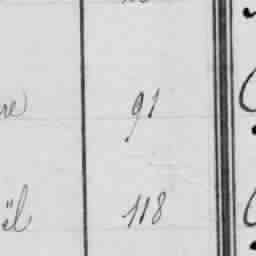 re 91
ël 118